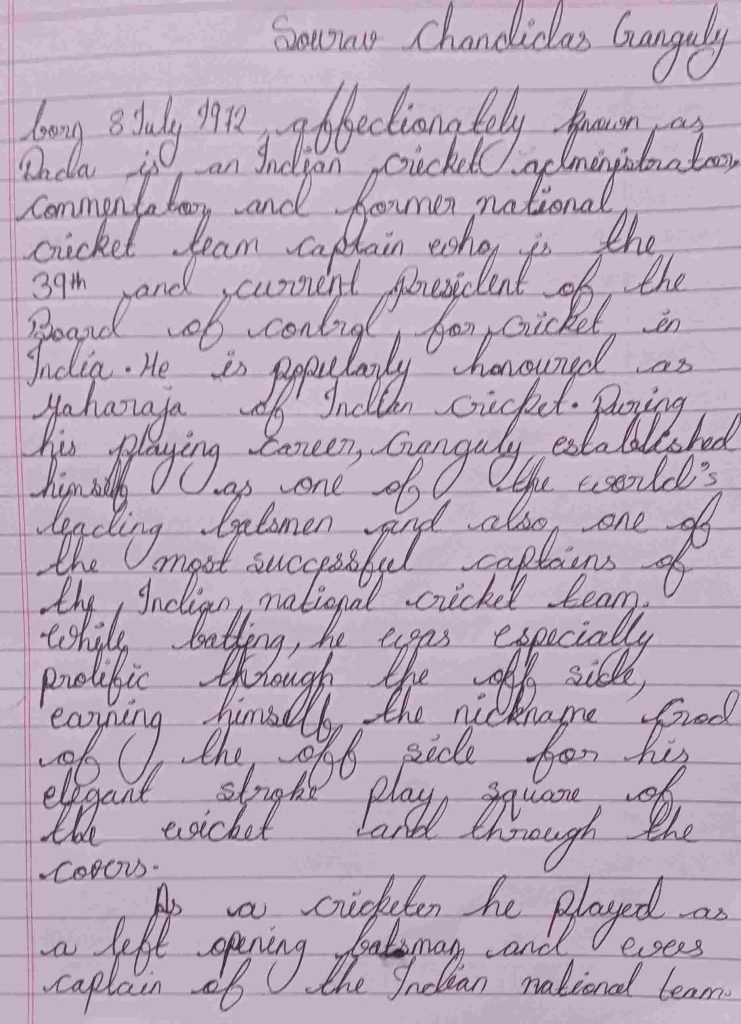 Sourav Chandidas Ganguly
born 8 July 1972, affectionately known as
Dada is an Indian cricket administrator,
commentator and former national
cricket team captain who is the
39th and current president of the
Board of control for cricket in
India. He is popularly honoured as
Maharaja of Indian cricket. During
his playing career, Ganguly established
himself as one of the world's
leading batsmen and also one of
the most successful captains of
the Indian national cricket team.
While batting, he was especially
prolific through the off side,
earning himself the nickname God
of the off side for his
elegant stroke play square of
the wicket and through the
covers.
As a cricketer he played as
a left opening batsman and was
captain of the Indian national team.